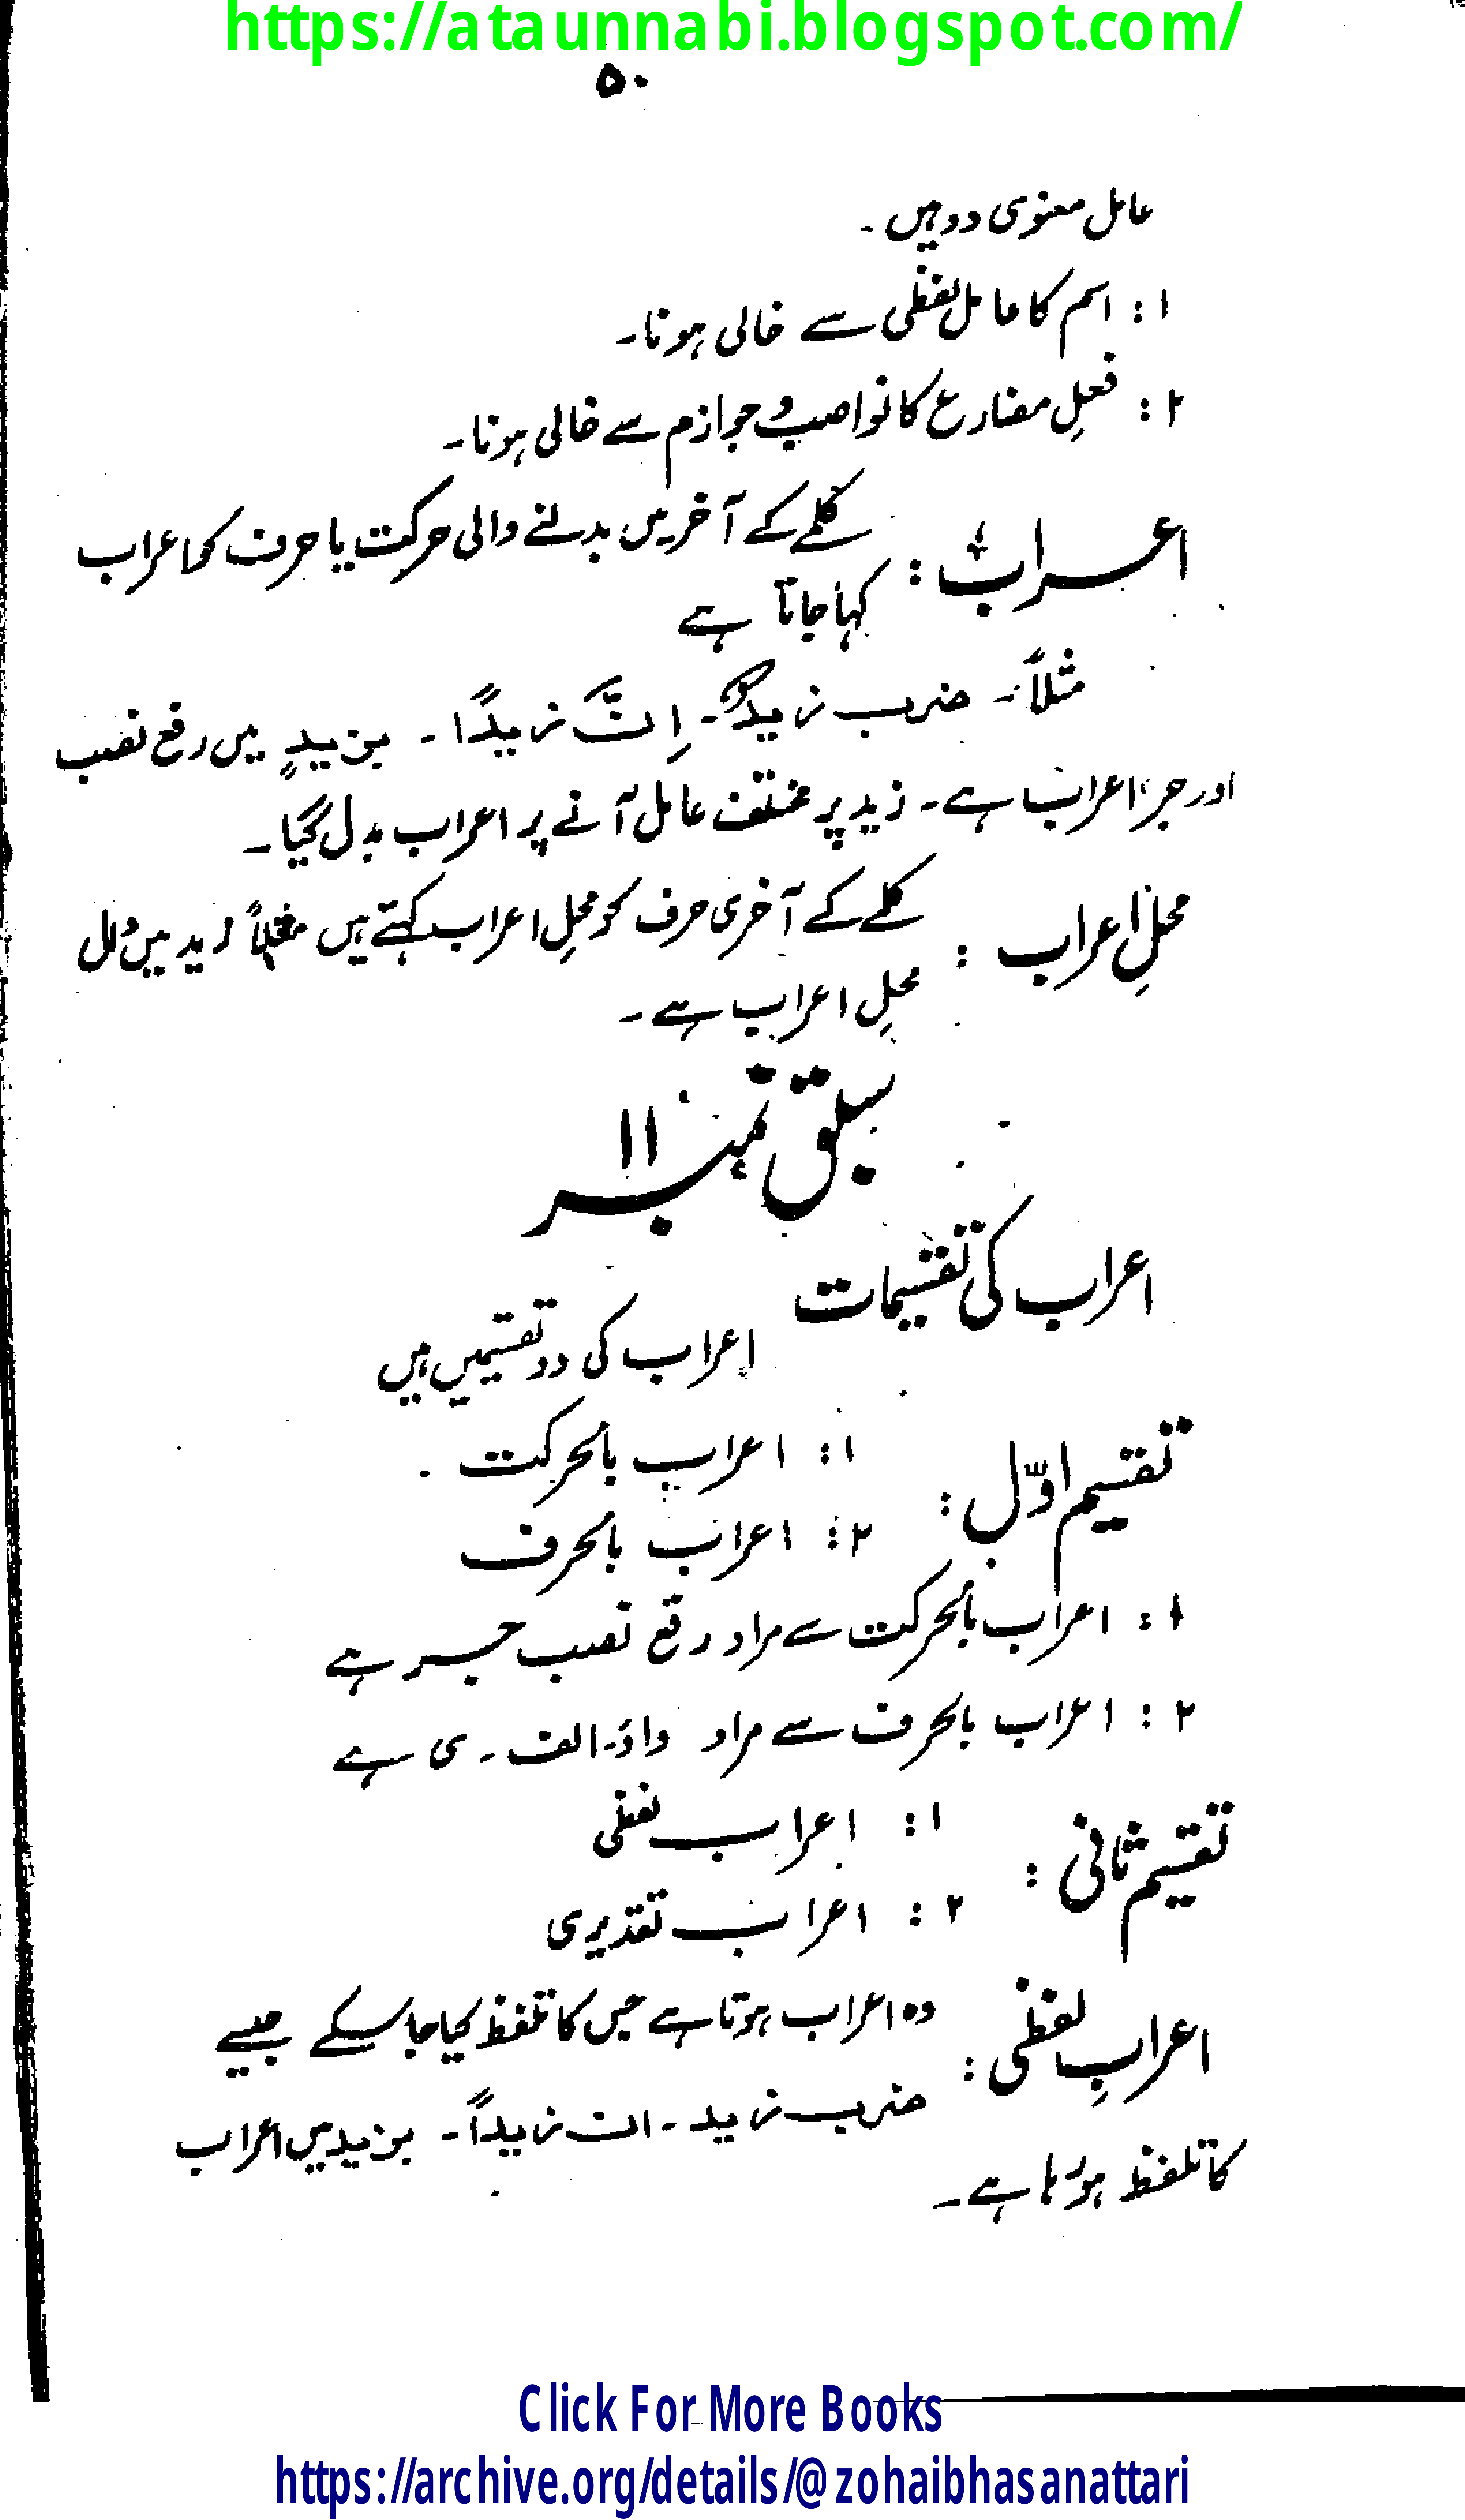 https://ataunnabi.blogspot.com/
۵۰
عامل معنوی دو ہیں ۔
۱: اسم کا عامل لفظی سے خالی ہونا۔
۲: فعلِ مضارع کا نواصب و جوازم سے خالی ہونا۔
اعراب: کلمے کے آخر میں بدلنے والی حرکت یا حرف کو اعراب
کہا جاتا ہے
مثلاً۔ ضرب زیدٌ۔ اِنَّ زیدًا۔ بزیدٍ میں رفع نصب
اور جر اعراب ہے۔ زید پر مختلف عامل آنے پر اعراب بدل گیا۔
محلِ اعراب: کلمے کے آخری حرف کو محلِ اعراب کہتے ہیں مثلاً زید میں دال
محلِ اعراب ہے۔
سبق نمبر ۱۱
اعراب کی تقسیمات
اعراب کی دو تقسیمیں ہیں
تقسیم اوّل: ۱: اعراب بالحرکت
۲: اعراب بالحرف
۱: اعراب بالحرکت سے مراد رفع نصب جر ہے
۲: اعراب بالحرف سے مراد واؤ۔ الف ۔ ی ہے
تقسیم ثانی: ۱: اعراب لفظی
۲: اعراب تقدیری
اعرابِ لفظی: وہ اعراب ہوتا ہے جس کا تلفظ کیا جا سکے جیسے
ضرب زید ۔ ان زیداً۔ بزید میں اعراب
کا تلفظ ہو رہا ہے۔
Click For More Books
https://archive.org/details/@zohaibhasanattari